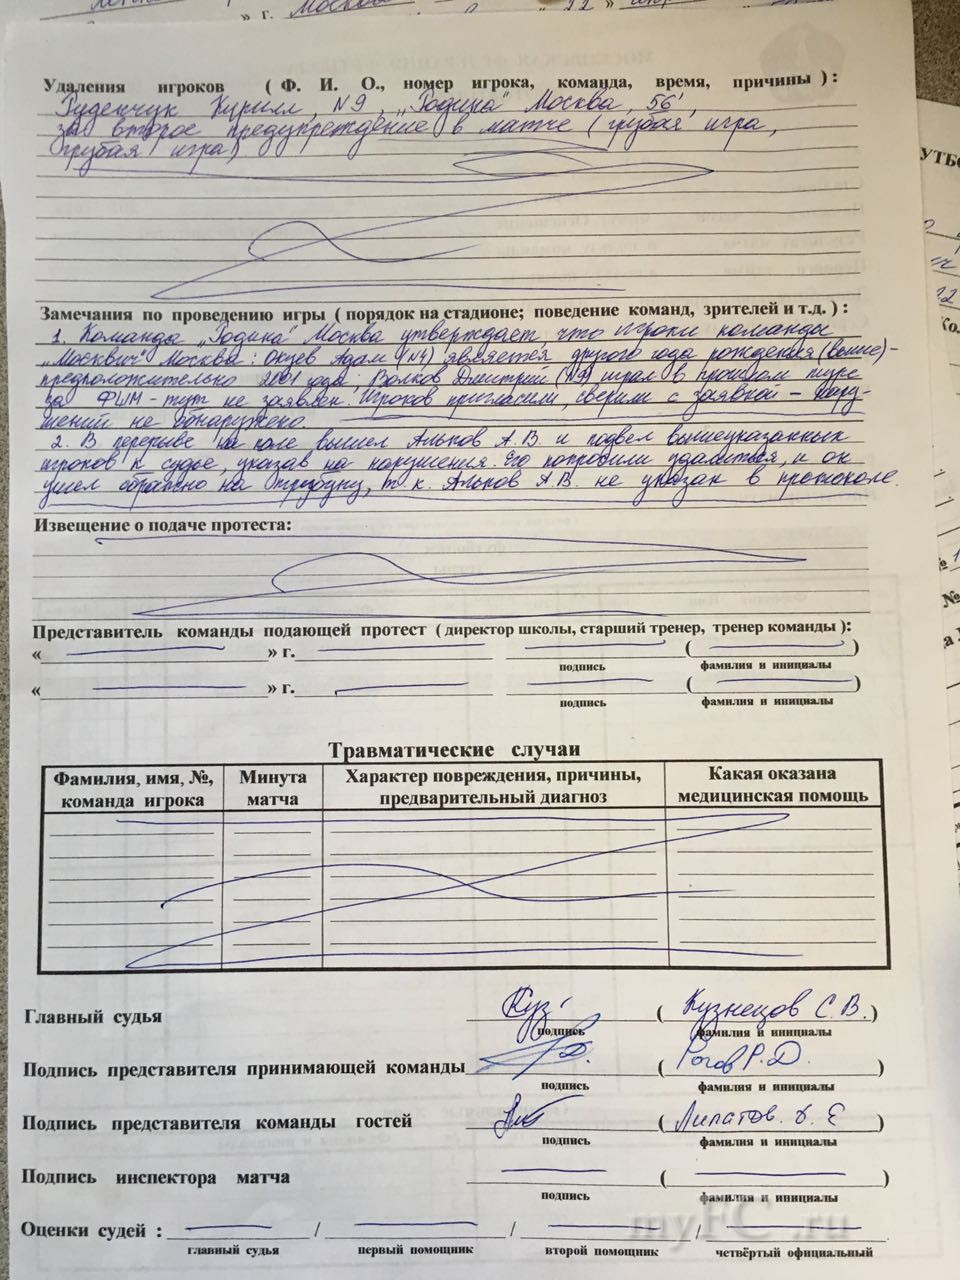 Москва
» г.
22 »
Удаления игроков ( Ф. И. О., номер игрока, команда, время, причины ) :
Руденчук Кирилл, N9, „Родина" Москва, 56',
за второе предупреждение в матче (грубая игра,
грубая игра)
Замечания по проведению игры ( порядок на стадионе; поведение команд, зрителей и т.д. ) :
1. Команда „Родина" Москва утверждает, что игроки команды
„Москвич" Москва: Окуев Адам (N4) является другого года рождения (выше)-
предположительно 2001 года, Волков Дмитрий (N9) играл в прошлом туре
за ФШМ - тут не заявлен. Игроков пригласили, сверили с заявкой – нару-
шений не обнаружено.
2. В перерыве на поле вышел Альков А.В и подвел вышеуказанных
игроков к судье, указав на нарушения. Его попросили удалиться, и он
ушел обратно на трибуну, т. к. Альков А.В. не указан в протоколе.
Извещение о подаче протеста:
Представитель команды подающей протест ( директор школы, старший тренер, тренер команды ):
« » г. ( )
подпись фамилия и инициалы
« » г. ( )
подпись фамилия и инициалы
Травматические случаи
Фамилия, имя, №, Минута Характер повреждения, причины, Какая оказана
команда игрока матча предварительный диагноз медицинская помощь
Главный судья Куз ( Кузнецов С.В. )
подпись фамилия и инициалы
Подпись представителя принимающей команды ( Рогов Р.Д. )
подпись фамилия и инициалы
Подпись представителя команды гостей ( Липатов Д. Е )
подпись фамилия и инициалы
Подпись инспектора матча ( )
подпись фамилия и инициалы
myFC.ru
Оценки судей : / / /
главный судья первый помощник второй помощник четвёртый официальный